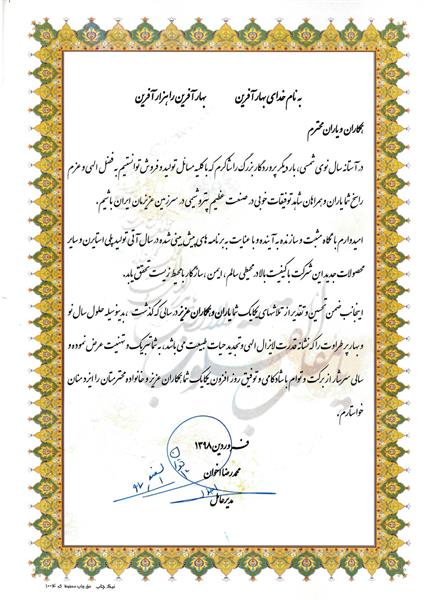 به نام خدای بهار آفرین بهار آفرین را هزار آفرین
همکاران و یاران محترم
در آستانه سال نوی شمسی، بار دیگر پروردگار بزرگ را شاکرم که با کلیه مسائل تولید و فروش توانستیم به فضل الهی و عزم
راسخ شما یاران و همراهان شاهد توفیقات خوبی در صنعت عظیم پتروشیمی در سرزمین عزیزمان ایران باشیم.
امیدوارم با نگاه مثبت و سازنده به آینده و با عنایت به برنامه های پیش بینی شده در سال آتی تولید پلی استایرن و سایر
محصولات جدید این شرکت با کیفیت بالا در محیطی سالم، ایمن، سازگار با محیط زیست تحقق یابد.
اینجانب ضمن تحسین و تقدیر از تلاشهای یکایک شما یاران و همکاران عزیز در سالی که گذشت، بدینوسیله حلول سال نو
و بهار پر طراوت را که نشانه قدرت لایزال الهی و تجدید حیات طبیعت می باشد، به شما تبریک و تهنیت عرض نموده و
سالی سرشار از برکت و توام با شادکامی و توفیق روز افزون یکایک شما همکاران عزیز و خانواده محترمتان را ایزد منان
خواستارم.
فروردین ۱۳۹۸
محمدرضا اخوان
مدیرعامل
نیک چاپ حق چاپ محفوظ کد ۱۰۰۶